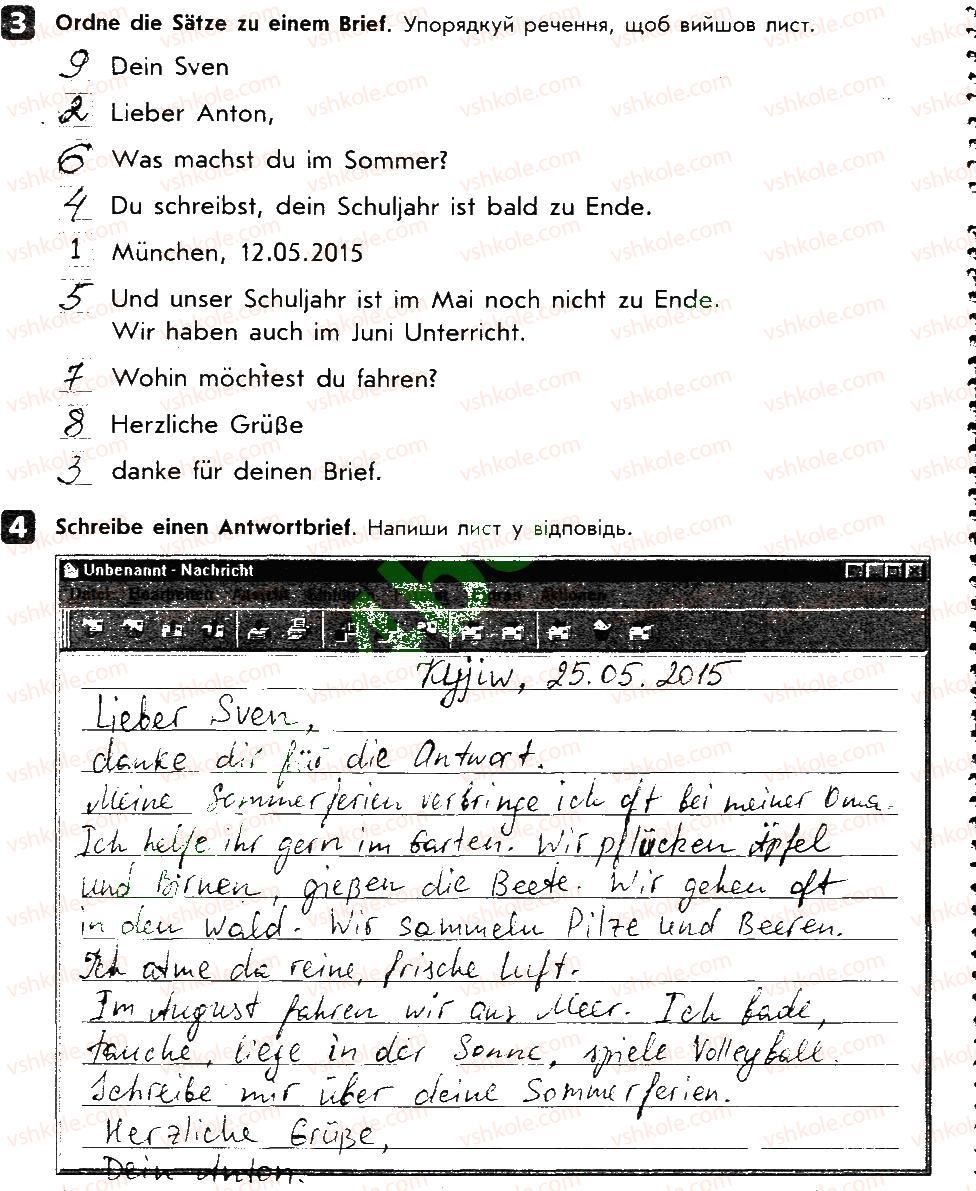 3 Ordne die Sätze zu einem Brief. Упорядкуй речення, щоб вийшов лист.
9 Dein Sven
2 Lieber Anton,
6 Was machst du im Sommer?
4 Du schreibst, dein Schuljahr ist bald zu Ende.
1 München, 12.05.2015
5 Und unser Schuljahr ist im Mai noch nicht zu Ende.
Wir haben auch im Juni Unterricht.
7 Wohin möchtest du fahren?
8 Herzliche Grüße
3 danke für deinen Brief.
4 Schreibe einen Antwortbrief. Напиши лист у відповідь.
Unbenannt - Nachricht
Datei Bearbeiten Ansicht Einfügen Format Extras Aktionen
Kyjiw, 25.05.2015
Lieber Sven,
danke dir für die Antwort.
Meine Sommerferien verbringe ich oft bei meiner Oma.
Ich helfe ihr gern im Garten. Wir pflücken Äpfel
und Birnen, gießen die Beete. Wir gehen oft
in den Wald. Wir sammeln Pilze und Beeren.
Ich atme da reine, frische Luft.
Im August fahren wir ans Meer. Ich bade,
tauche, liege in der Sonne, spiele Volleyball.
Schreibe mir über deine Sommerferien.
Herzliche Grüße,
Dein Anton.